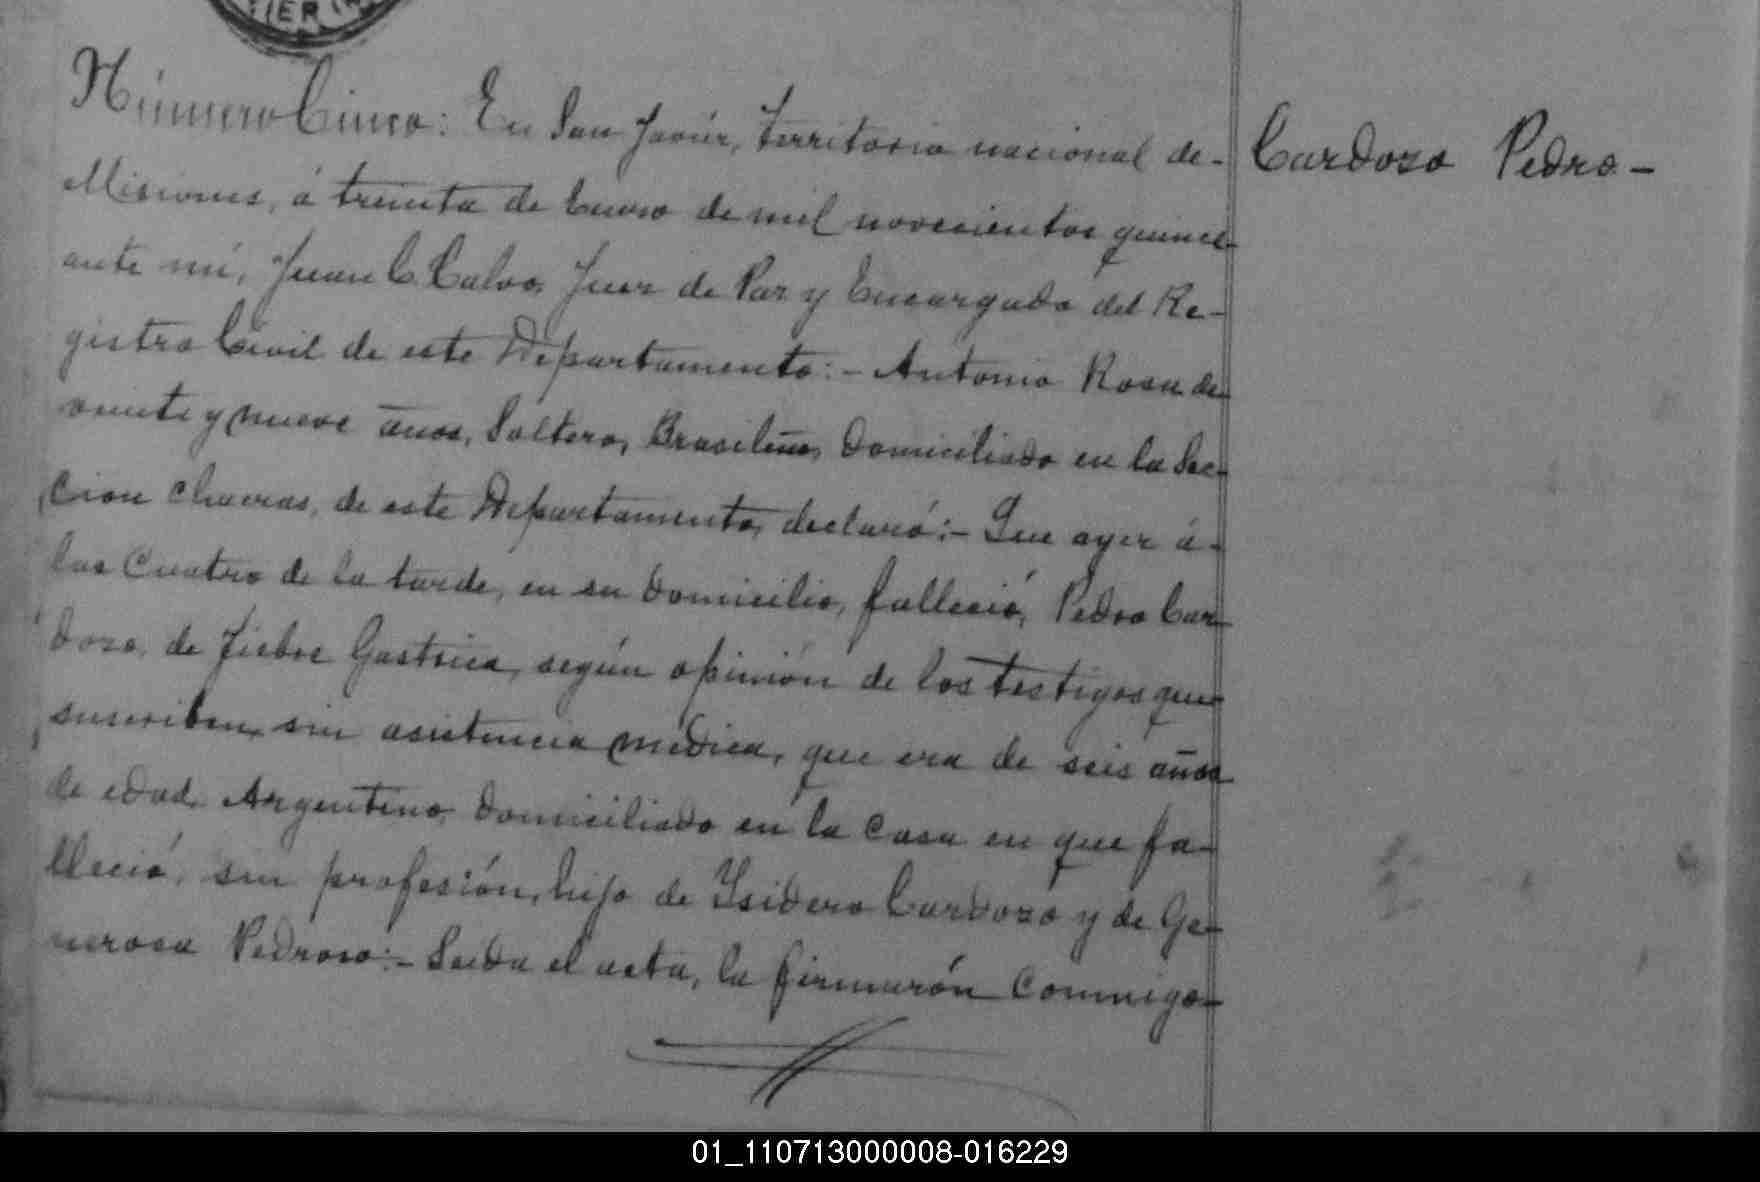 Número Cinco: En San Javier, territorio nacional de-
Cardozo Pedro-
Misiones, á treinta de Enero de mil novecientos quince
ante mí, Juan C. Calvo, Juez de Paz y Encargado del Re-
gistro Civil de este Departamento:- Antonio Rosa de
veinte y nueve años, Soltero, Brasileño, domiciliado en la Sec-
cion Chacras, de este Departamento, declaró:- Que ayer á-
las Cuatro de la tarde, en su domicilio, falleció, Pedro Car-
dozo, de Fiebre Gastrica, según opinión de los testigos que
suscriben, sin asistencia médica, que era de seis años
de edad, Argentino, domiciliado en la Casa en que fa-
lleció, sin profesión, hijo de Ysidero Cardozo y de Ge-
nerosa Pedroso:- Leida el acta, la firmarón Conmigo-
01_110713000008-016229